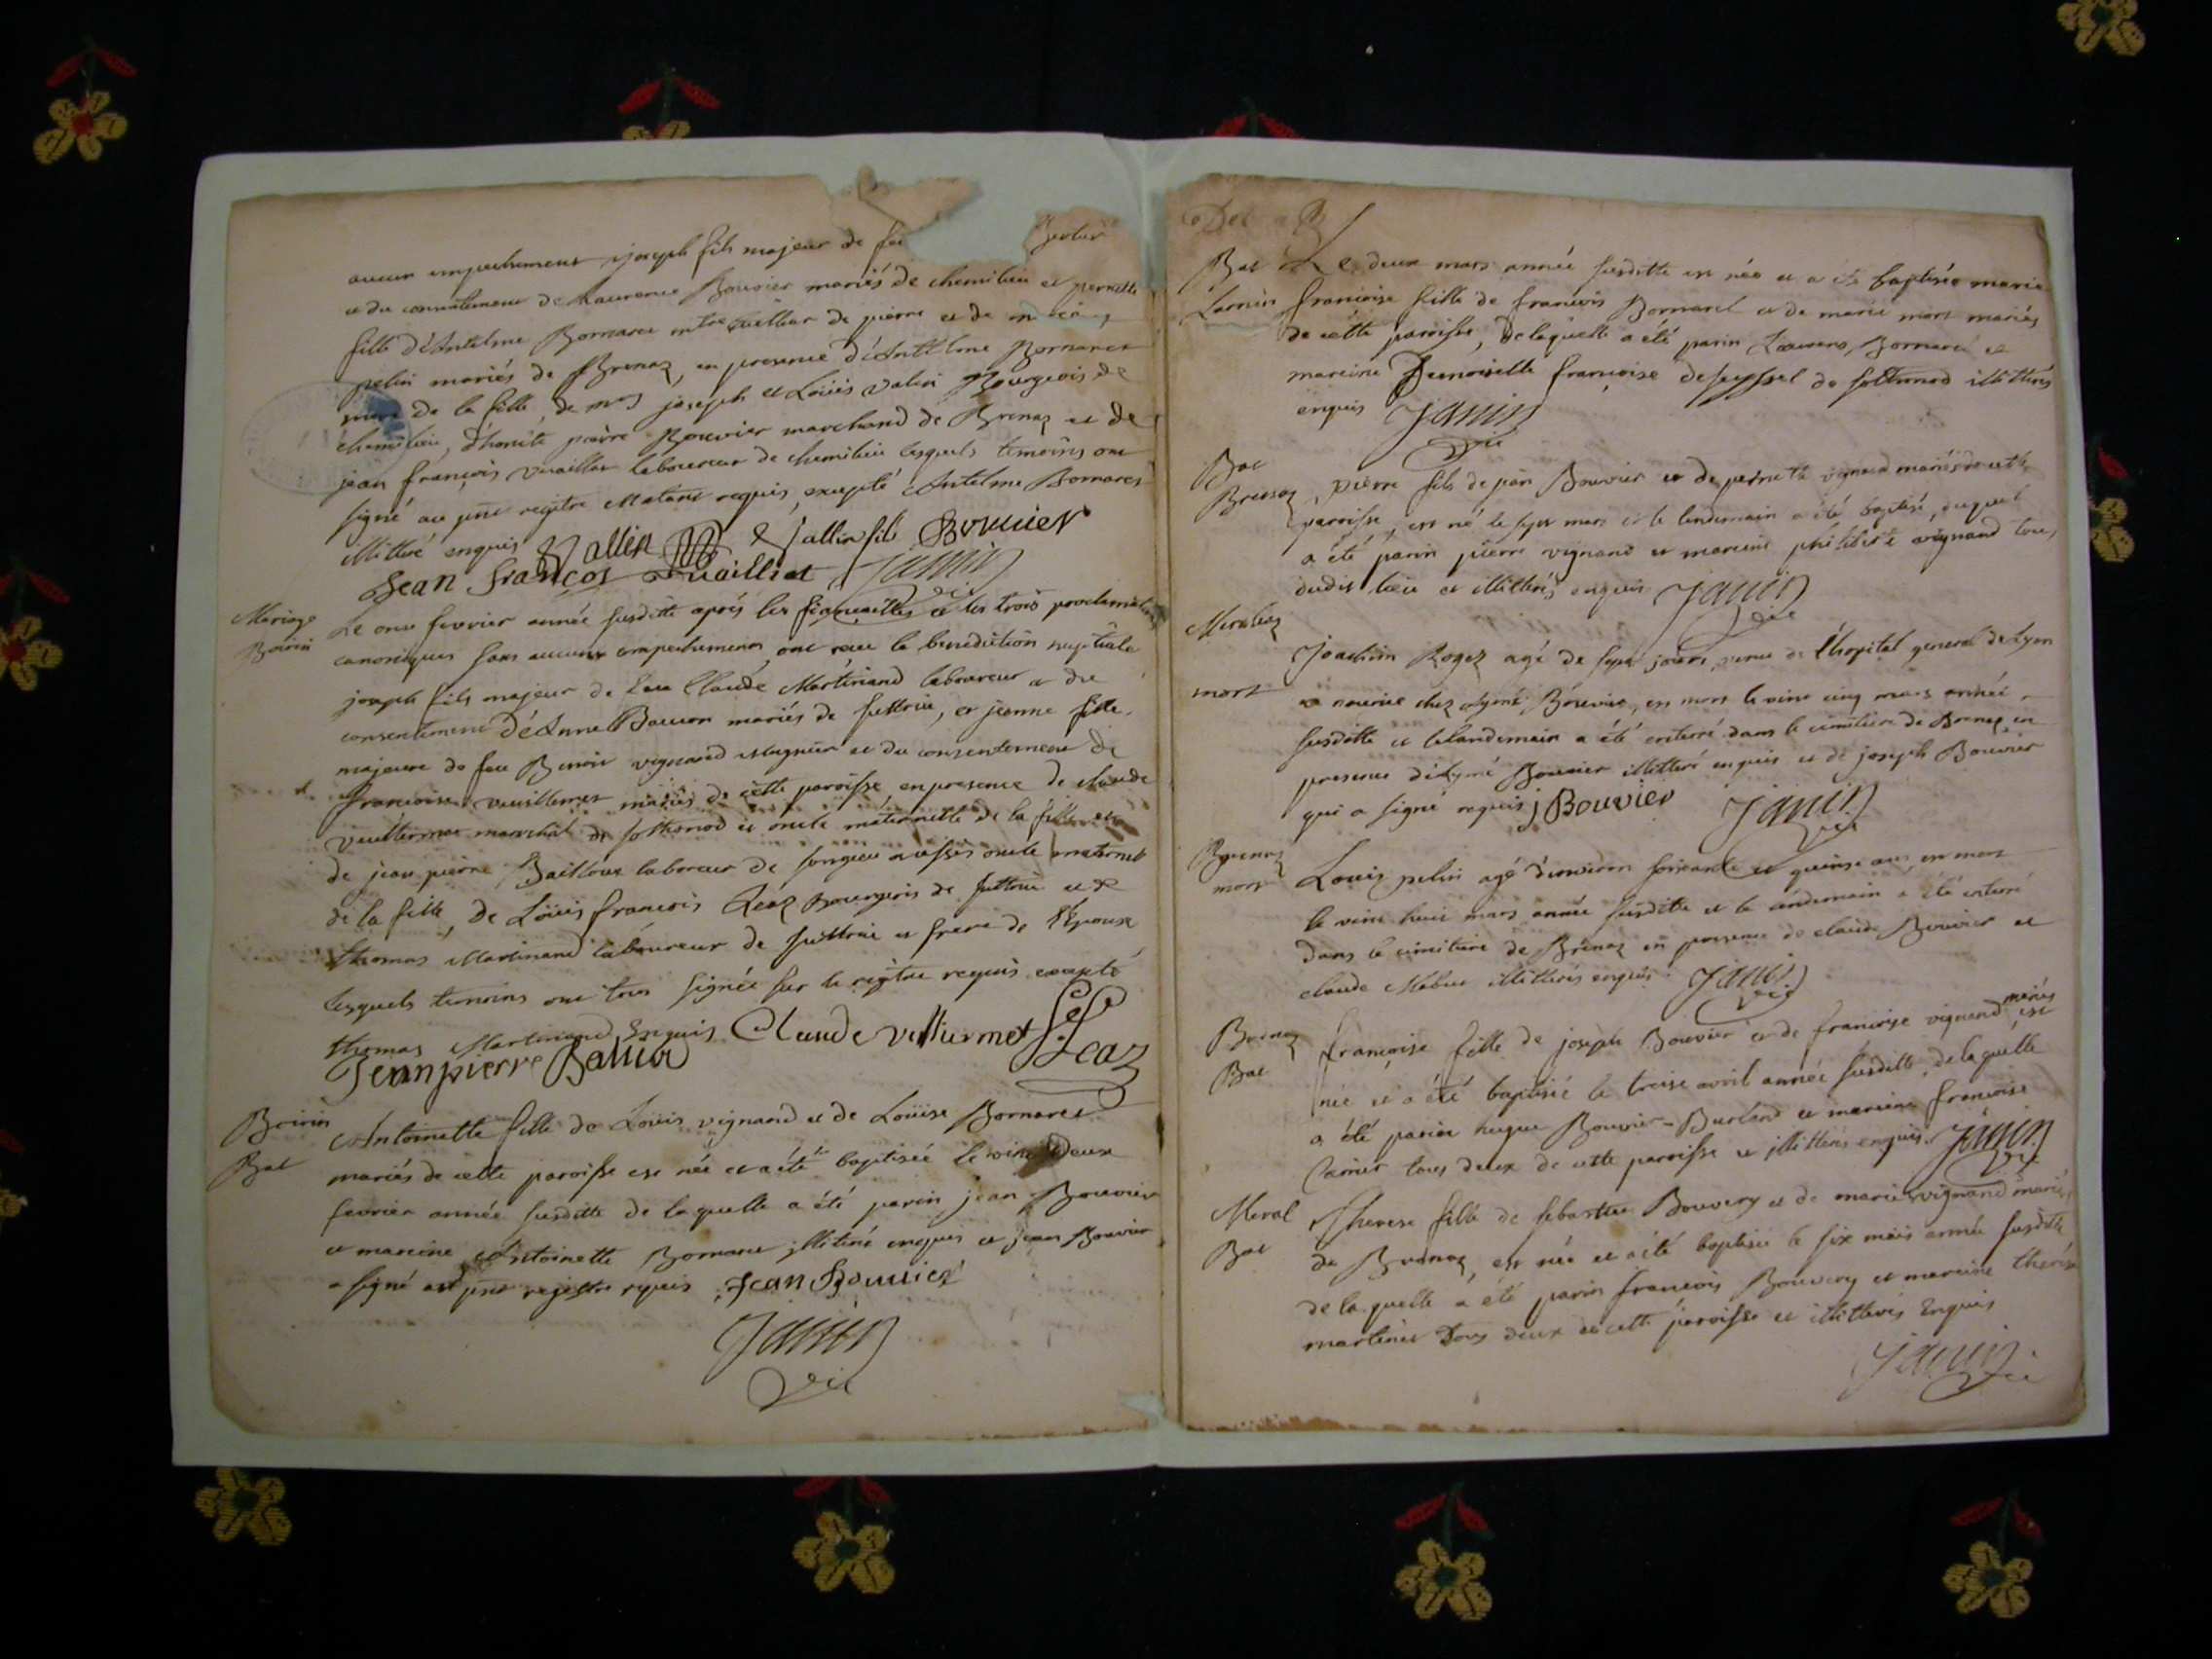 aucun empechement joseph fils majeur de feu
et du consentement de Laurence Bouvier mariés de chemilieu et pernette
fille d'Antelme Bornarel de pierre et de
pelin mariés de Brenaz, en presence d'Anthelme Bornarel
de la fille, de joseph et Loüis valin Bourgeois de
chemilieu, d'honête pierre Bouvier marchand de Brenaz et de
jean françois vuaillat laboureur de chemilieu lesquels temoins ont
signé au pnt regitre requis, excepté Antelme Bornarel
illitéré enquis Vallin Vallin fils Bouuier
Jean francois Vuailliat Janin
vic
Mariage
Boirin
Le onse fevrier année susditte aprés les fiancailles et les trois proclamations
canoniques sans aucuns empechemens ont reçu la benediction nuptiale
joseph fils majeur de feu Claude Martinand laboureur et du
consentement d'Anne mariés de suttrieu, et jeanne fille
majeure de feu Benoit vignand et du consentement de
francoise vuillermet mariés de cette paroisse, en presence de claude
vuillermet marechal de sothonod et oncle maternelle de la fille et
de jean pierre Baillou laboreur de songieu aussis oncle maternel
de la fille, de Loüis francois Leaz Bourgeois de suttrieu et de
thomas Martinand laboureur de suttrieu et frere de l'Epoux
lesquels temoins ont tous signés sur le regitre requis excepté
thomas Martinand Enquis Claude vulliermet Leaz
Jean pierre
Boirin
Bat
Antoinette fille de Loüis vignand et de Loüise Bornarel
mariés de cette paroisse est née et a été baptisée le vint Deux
fevrier année susditte de laquelle a été parin jean Bouvier
et mareine Antoinette Bornarel illitéré enquis et jean Bouvier
a signé au pnt regitre requis Jean Bouuier
Janin
vic
Bat
Larnin
Le deux mars année susditte est née et a été baptisée marie
francoise fille de francois Bornarel et de marie mariés
de cette paroisse, de laquelle a été parin Bornarel et
mareine Demoiselle francoise deseyssel de sothonod illittérés
enquis Janin
vic
Bat
pierre fils de Bouvier et de pernette vignand mariés de cette
paroisse, est né le sept mars et le lendemain a été baptisé, duquel
a été parin pierre vignand et mareine philiberte vignand tous
dudit lieu et illittérés enquis Janin
vic
mort
Joachim Roger agé de sept jours, venu de l'hopital general de Lyon
en nourice chez Bouvier, est mort le vint cinq mars année
susditte et le landemain a été enterré dans le cimetiere de Brenaz en
presence Bouvier illitteré enquis et de joseph Bouvier
qui a signé requis j Bouvier Janin
vic
Brenaz
mort
Louis pelin agé d'environ soixante et quinse ans, est mort
le vint huit mars année susditte et le landemain a été enterré
dans le cimitiere de Brenaz en presence de claude Bouvier et
claude illittérés enquis Janin
vic
Brenaz
Bat
francoise fille de joseph Bouvier et de francoise vignand mariés est
née et a été baptisée le treise avril année susditte, de laquelle
a été parin hugue Bouvier-Burland et mareine francoise
tous deux de cette paroisse et illittérés enquis. Janin
vic
Meral
Bat
therese fille de sebastien Bouvery et de marie vignand mariés
de Brenaz, est née et a été baptisée le six mais année susditte
de laquelle a été parin francois Bouvery et mareine therese
martinet Tous deux de cette paroisse et illittérés Enquis
Janin
vic